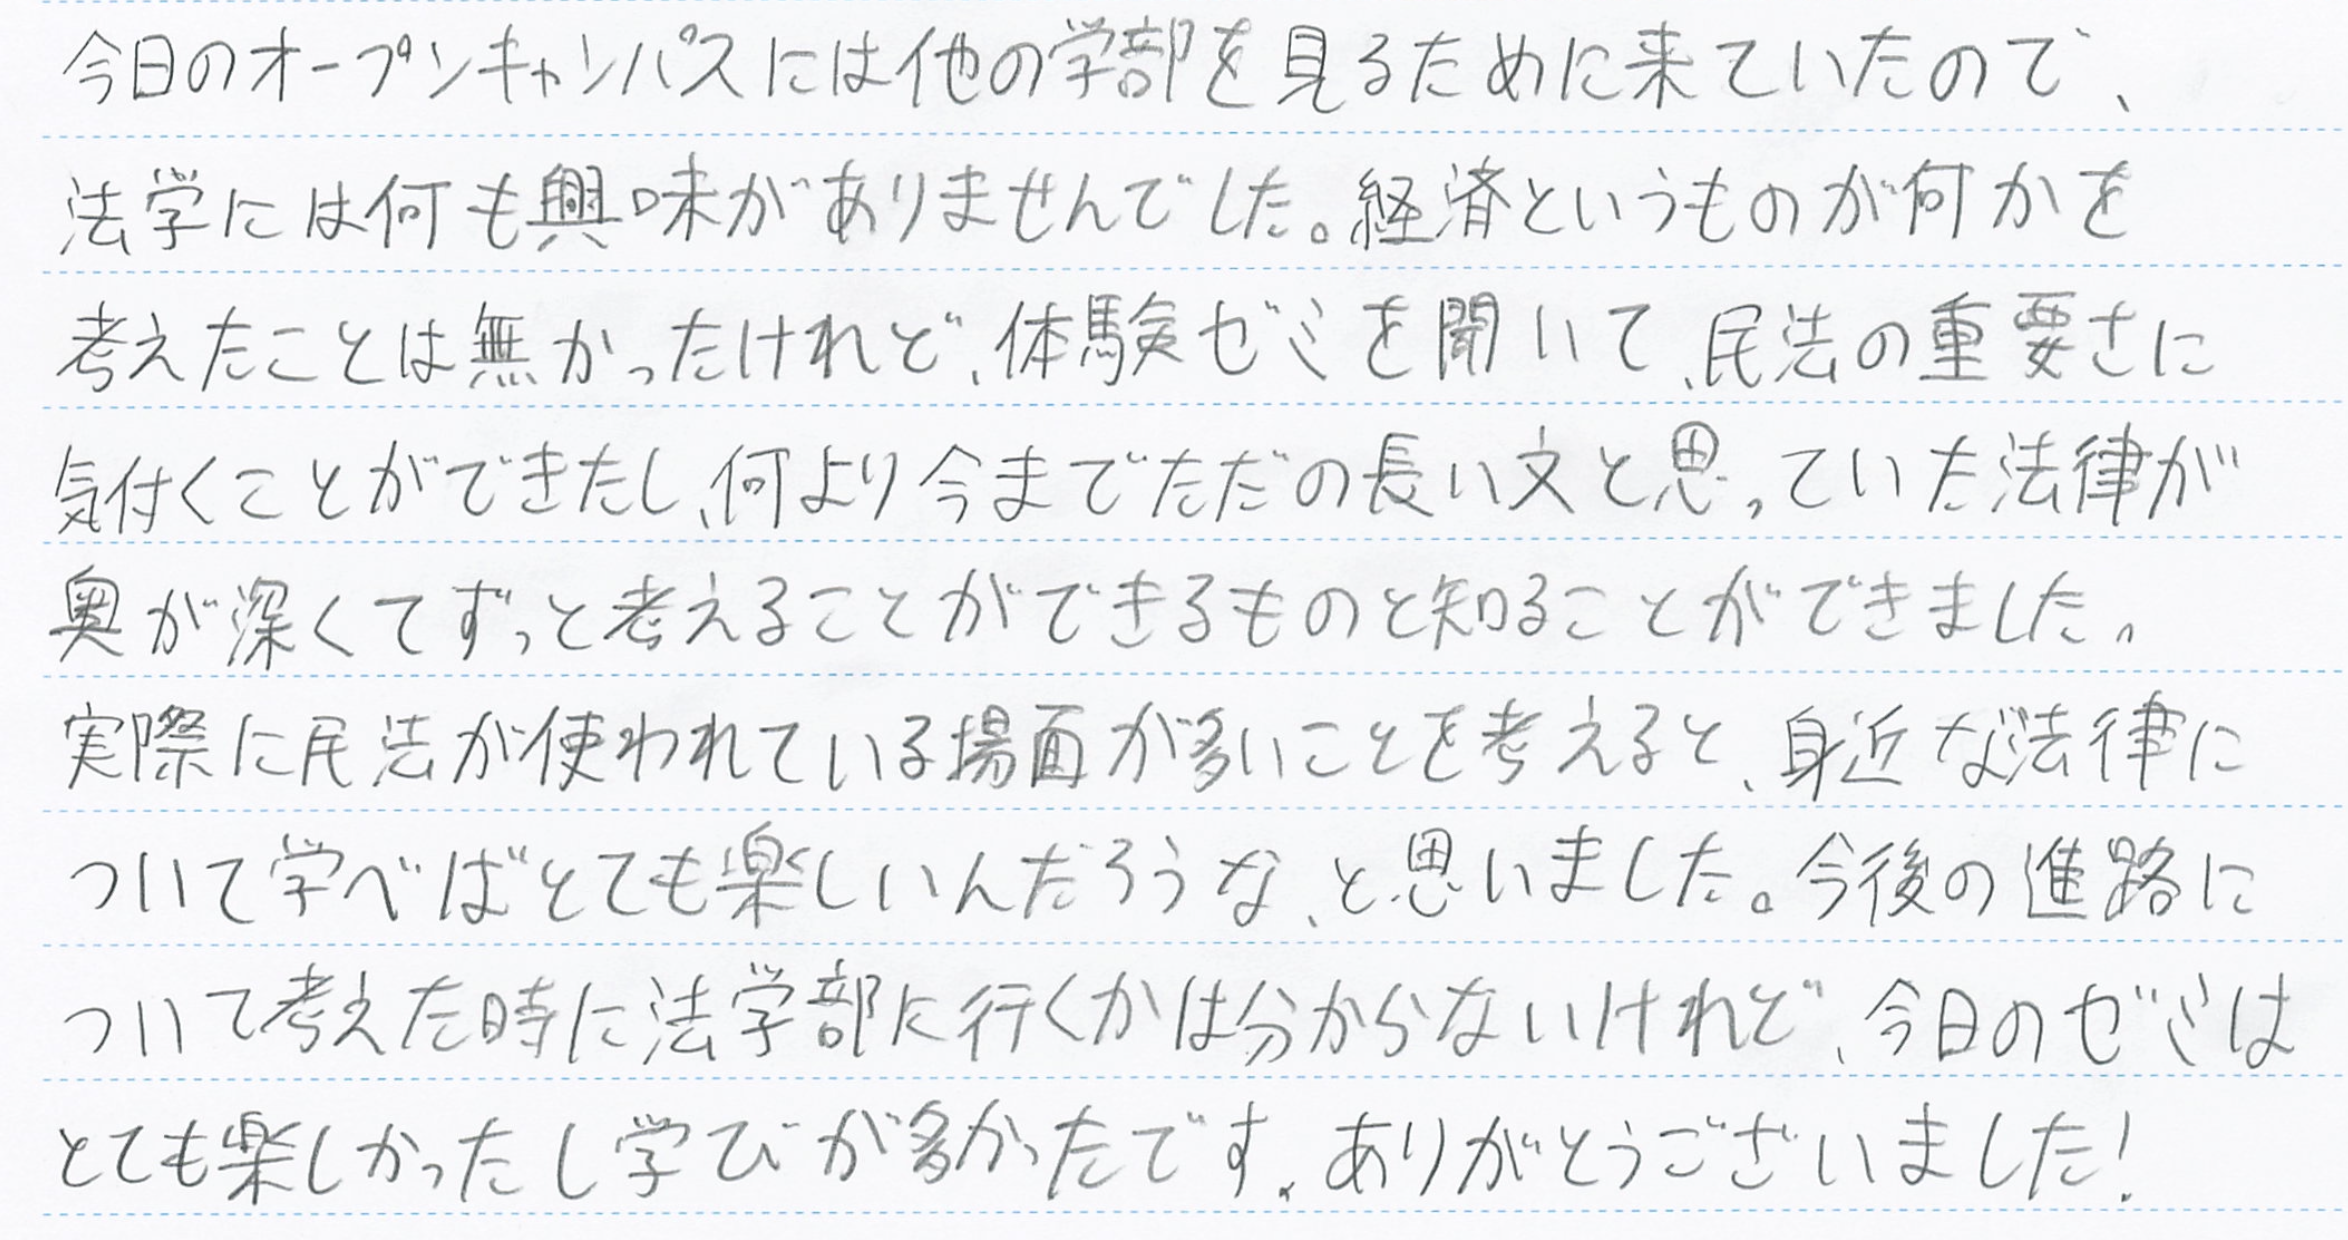 今日のオープンキャンパスには他の学部を見るために来ていたので、
法学には何も興味がありませんでした。経済というものが何かを
考えたことは無かったけれど、体験ゼミを聞いて、民法の重要さに
気付くことができたし、何より今までただの長い文と思っていた法律が
奥が深くてずっと考えることができるものと知ることができました。
実際に民法が使われている場面が多いことを考えると、身近な法律に
ついて学べばとても楽しいんだろうな、と思いました。今後の進路に
ついて考えた時に法学部に行くかは分からないけれど、今日のゼミは
とても楽しかったし学びが多かったです。ありがとうございました!